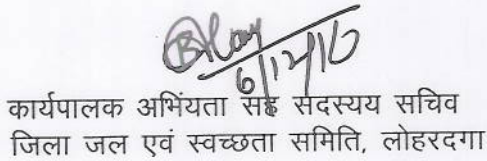 कार्यपालक अभिंयता सह सदस्यय सचिव
जिला जल एवं स्वच्छता समिति, लोहरदगा